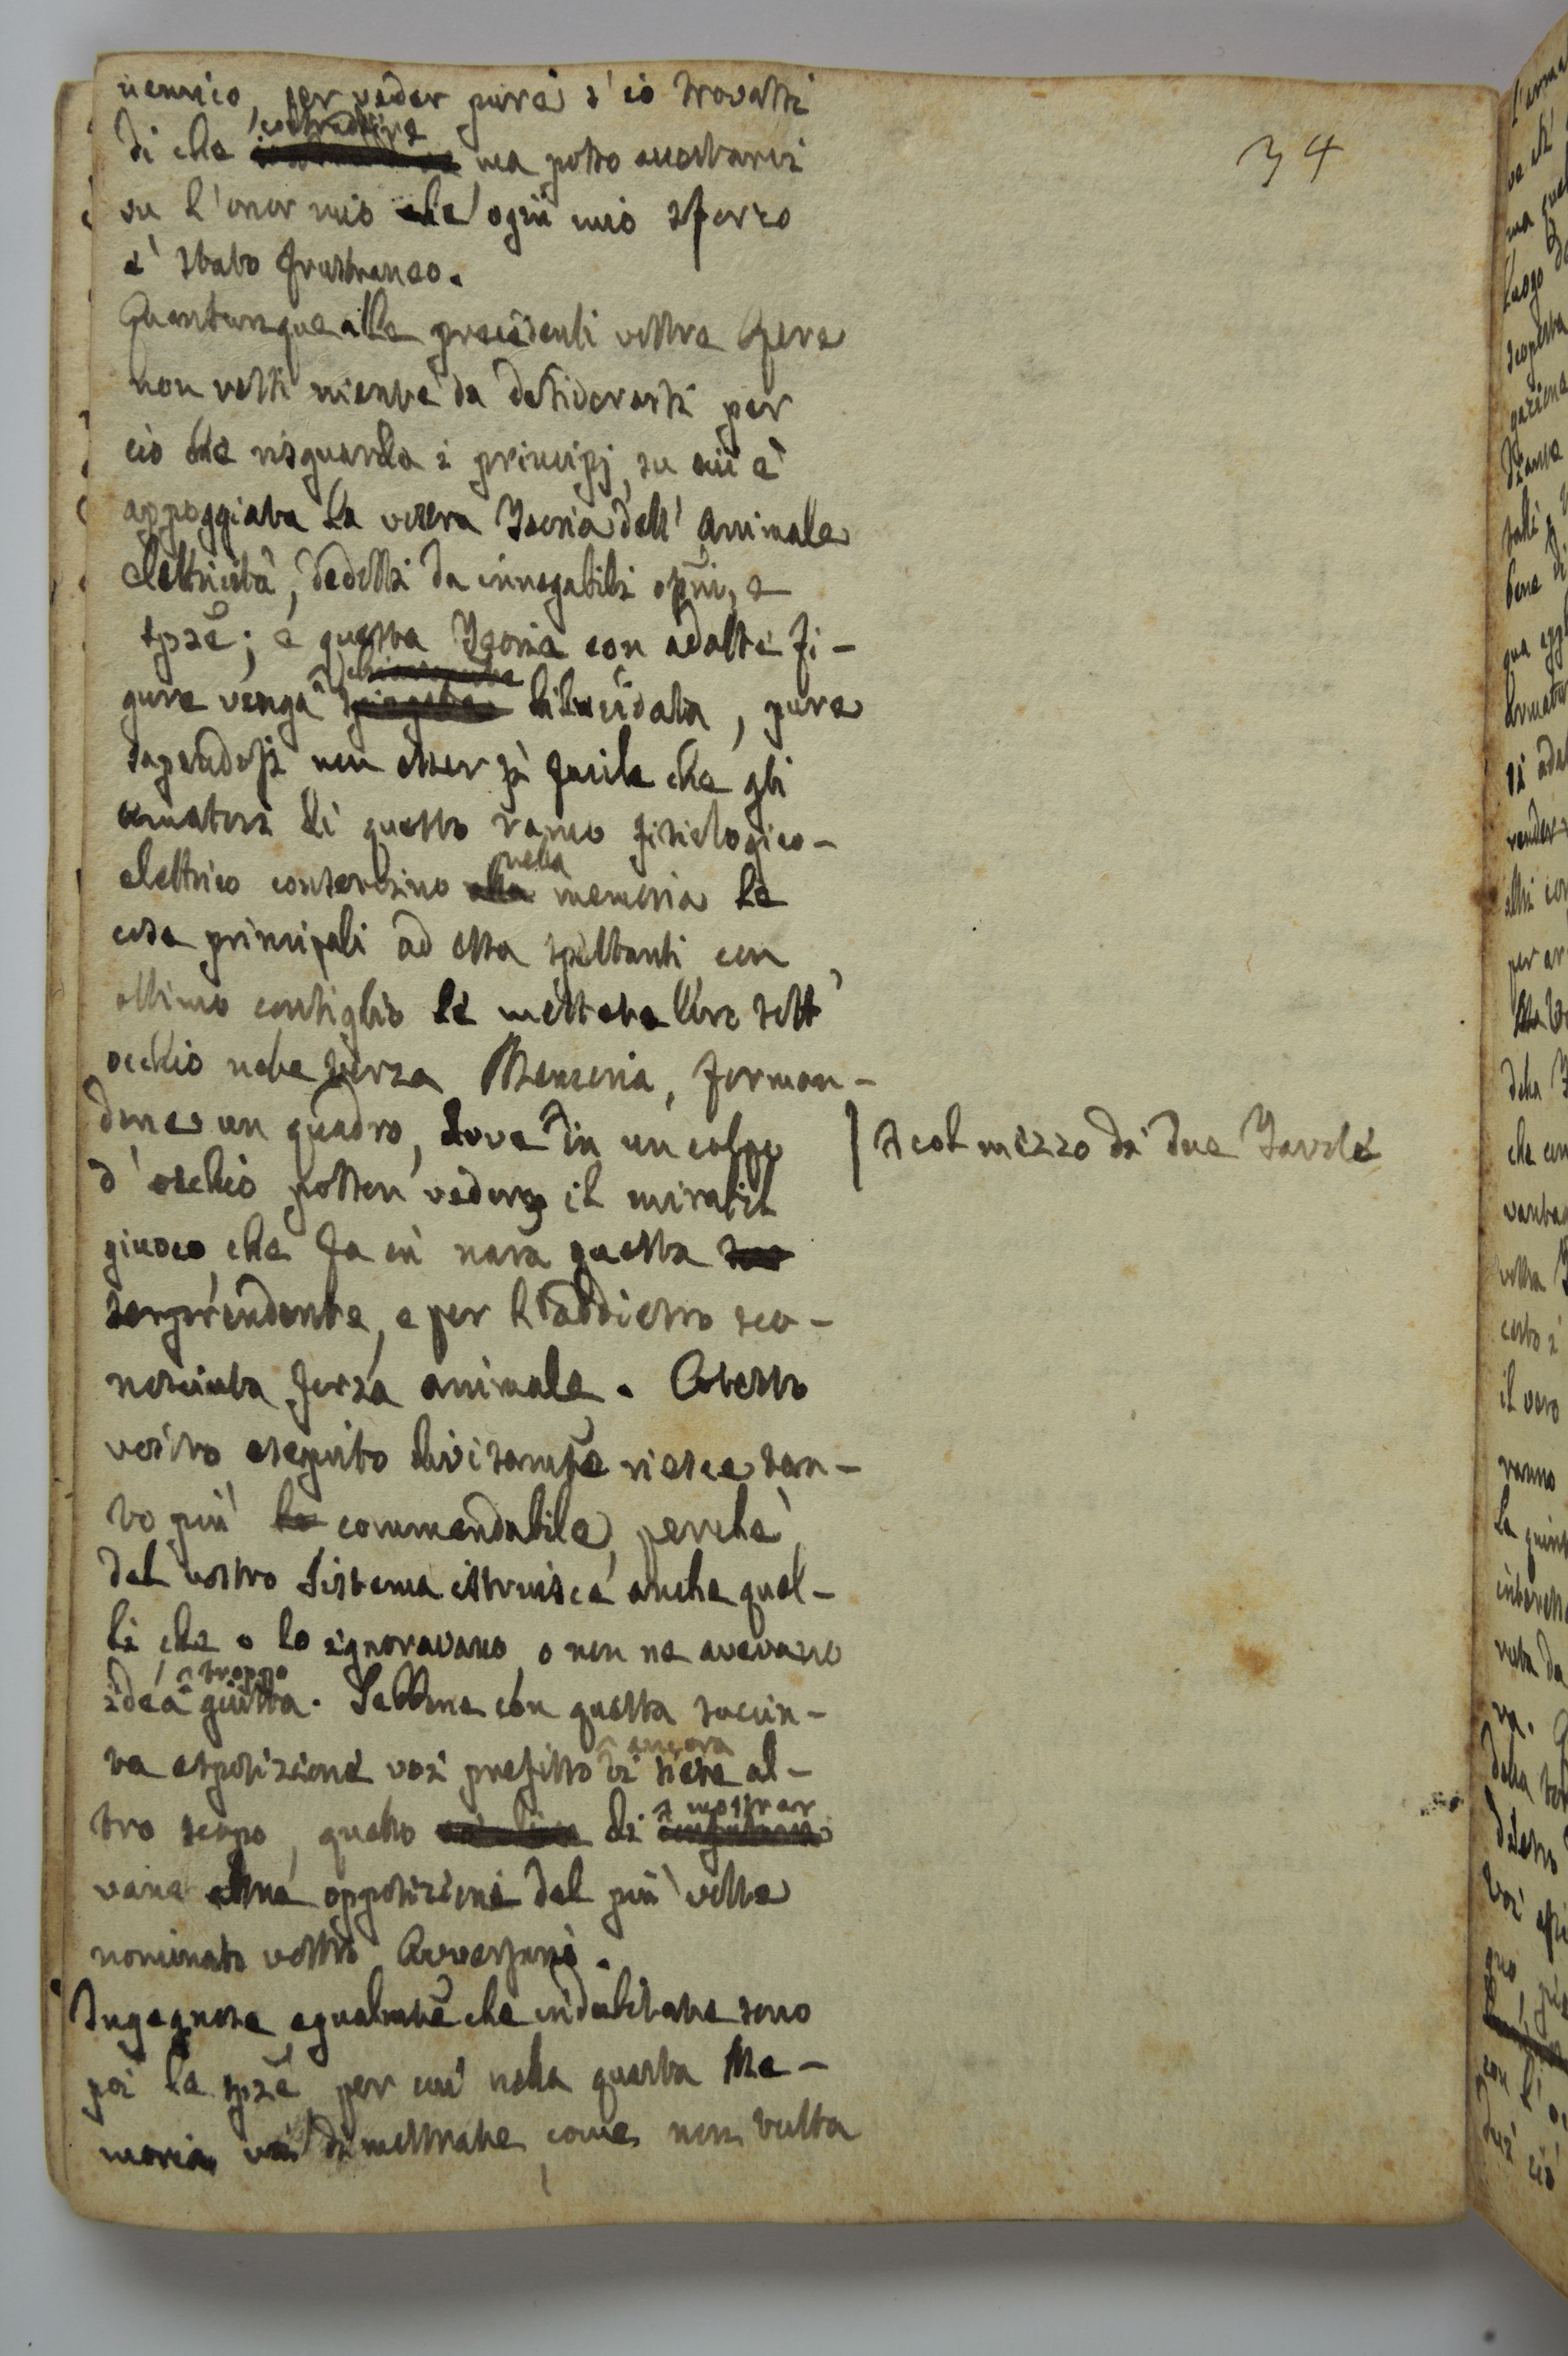 34
nemico, per veder pure s'io trovassi
di che contradire ma posso accertarvi
su l'onor mio che ogni mio sforzo
e' stato frustraneo.
Quantunque alle precedenti vostre Opere
non resti niente da desiderarsi per
ciò che risguarda i principj, su cui è
appoggiata la vostra Teoria dell' animale
elettricità, dedotti da innegabili ossni, e
spze; e questa Teoria con adatte fi-
gure venga dilucidata, pure
sapendosi non esser sì facile che gli
amatori di questo ramo fisiologico-
elettrico conservino nella memoria le
cose principali ad essa spettanti, con
ottimo consiglio le mettete loro sott'
occhio nella terza Memoria, forman-
done un quadro, dove in un colpo
| col mezzo di due Tavole
d'occhio posson vedere il mirabil
giuoco, che fa in nara questa
sorprendente, e per l'addietro sco-
nosciuta forza animale. Cotesto
vostro eseguito divisamto riesce tan-
to più commendabile, perchè
del vostro Sistema istruisce anche quel-
li che o lo ignoravano, o non ne avevano
idea troppo giusta. Sebbene con questa succin-
ta esposizione voi prefisso vi siete ancora al-
tro scopo, quello di mostrar
vane alcune opposizioni del più volte
nominato vostro Avversario.
Ingegnose egualmte che indubitate sono
poi le spze, per cui nella quarta Me-
moria voi dimostrate, come non tutta